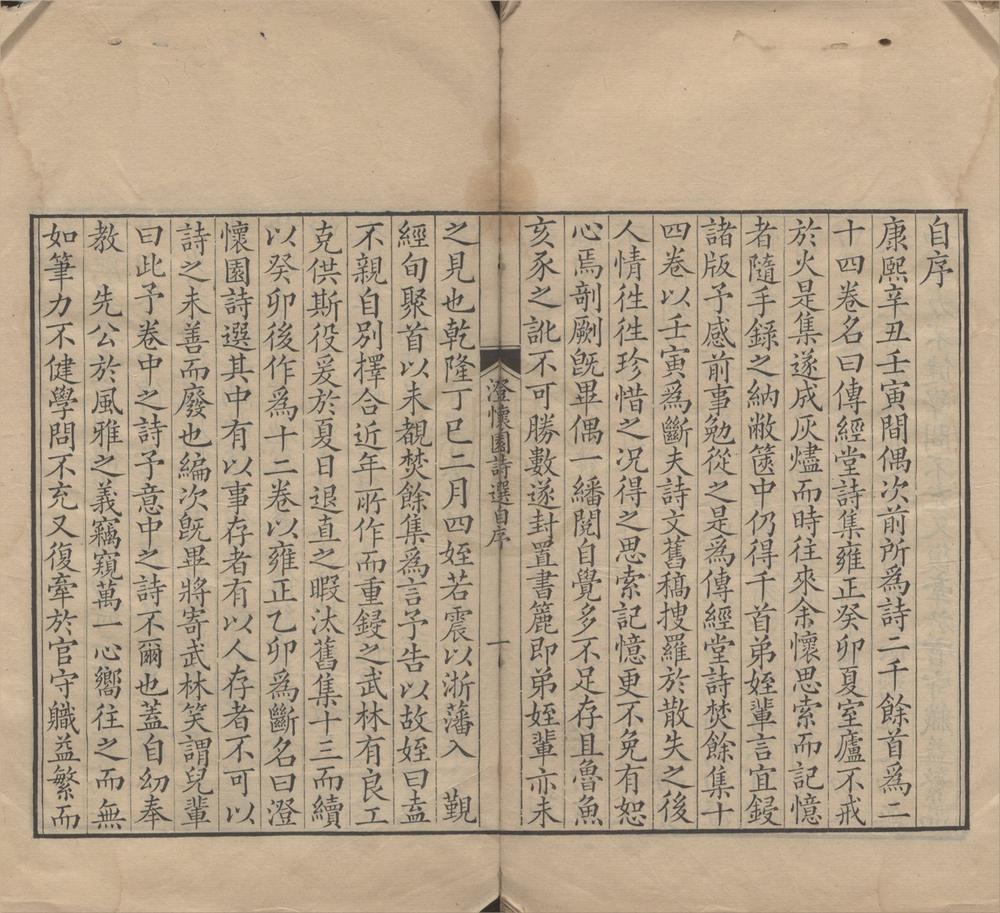 自序
康熙辛丑壬寅間偶次前所為詩二千餘首為二
十四卷名曰傳經堂詩集雍正癸卯夏室廬不戒
於火是集遂成灰燼而時往來余懷思索而記憶
者隨手錄之納敝篋中仍得千首弟姪輩言宜鋟
諸版予感前事勉從之是為傳經堂詩焚餘集十
四卷以壬寅為斷夫詩文舊稿搜羅於散失之後
人情徃徃珍惜之况得之思索記憶更不免有恕
心焉剞劂旣畢偶一繙閱自覺多不足存且魯魚
亥豕之訛不可勝數遂封置書簏即弟姪輩亦未
澄懷園詩選自序
一
之見也乾隆丁巳二月四姪若震以浙藩入 覲
經旬聚首以未覩焚餘集為言予告以故姪曰盍
不親自別擇合近年所作而重鋟之武林有良工
克供斯役爰於夏日退直之暇汰舊集十三而續
以癸卯後作為十二卷以雍正乙卯為斷名曰澄
懷園詩選其中有以事存者有以人存者不可以
詩之未善而廢也編次旣畢將寄武林笑謂兒輩
曰此予卷中之詩予意中之詩不爾也蓋自幼奉
教 先公於風雅之義竊窺萬一心嚮往之而無
如筆力不健學問不充又復牽於官守職益繁而